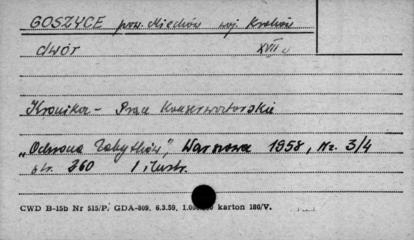 GOSZYCE pow. Miechów woj. Kraków
dwór XVII w
Kronika - Prace Konserwatorskie
"Ochrona Zabytków", Warszawa 1958, Nr. 3/4
str. 260 1 ilustr.
CWD B-15b Nr 515/P. GDA-809. 6.3.59. karton 180/V.